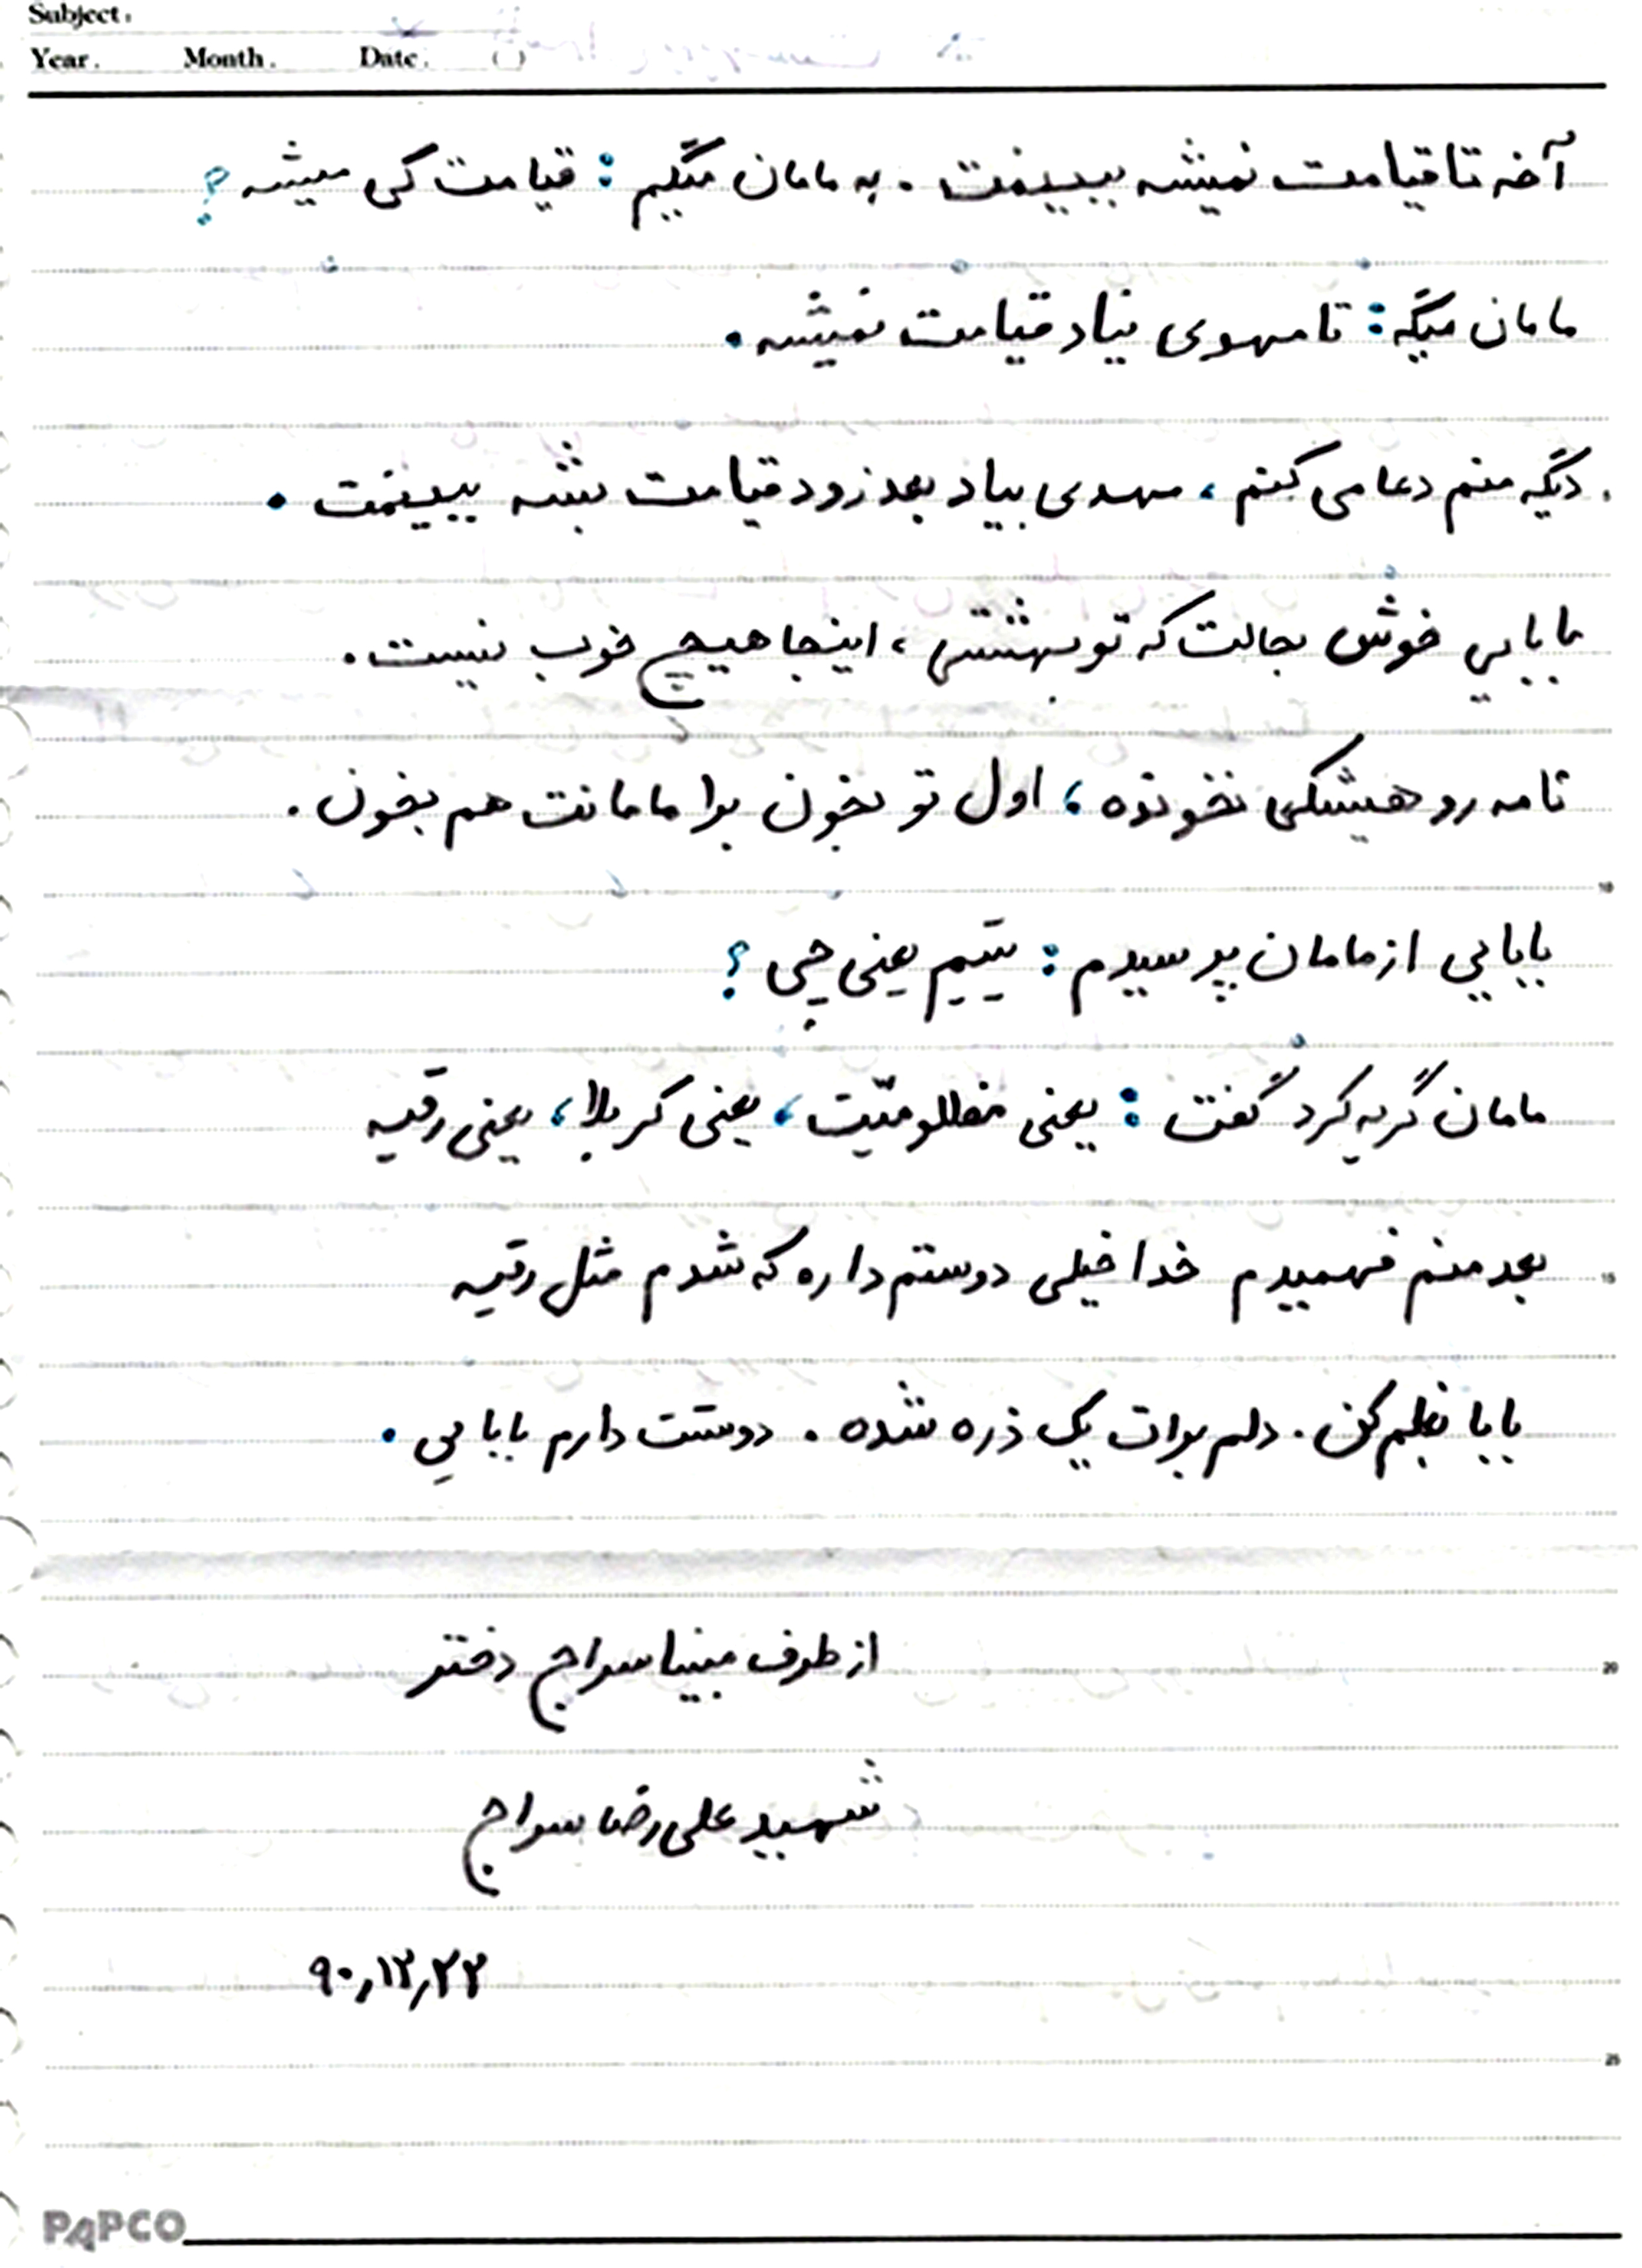 Subject:
Year. Month. Date. ( )
آخه تا قیامت نمیشه ببینمت . به مامان میگم : قیامت کی میشه ؟
مامان میگه : تا مهدی نیاد قیامت نمیشه .
دیگه منم دعا می کنم ، مهدی بیاد بعد زود قیامت بشه ببینمت .
بابایی خوش بحالت که تو بهشتی ، اینجا هیچ خوب نیست .
نامه رو هیشکی نخونده ، اول تو بخون برا مامانت هم بخون .
بابایی از مامان پرسیدم : یتیم یعنی چی ؟
مامان گریه کرد گفت : یعنی مظلومیّت ، یعنی کربلا ، یعنی رقیه
بعد منم فهمیدم خدا خیلی دوستم داره که شدم مثل رقیه
بابا بغلم کن . دلم برات یک ذره شده . دوستت دارم بابایی .
از طرف مبینا سراج دختر
شهید علی رضا سراج
۹۰,۱۲,۲۲
10
15
20
25
PAPCO